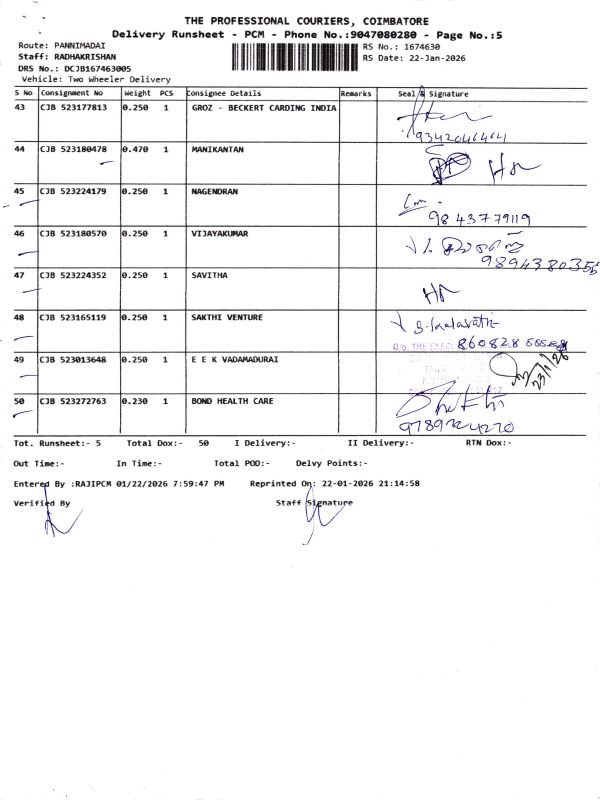 THE PROFESSIONAL COURIERS, COIMBATORE
Delivery Runsheet - PCM - Phone No.:9047080280 - Page No.:5
Route: PANNIMADAI
RS No.: 1674630
Staff: RADHAKRISHAN
RS Date: 22-Jan-2026
DRS No.: DCJB167463005
Vehicle: Two Wheeler Delivery
S No Consignment No Weight PCS Consignee Details Remarks Seal & Signature
43 CJB 523177813 0.250 1 GROZ - BECKERT CARDING INDIA
9342046464
44 CJB 523180478 0.470 1 MANIKANTAN
45 CJB 523224179 0.250 1 NAGENDRAN
9843779119
46 CJB 523180570 0.250 1 VIJAYAKUMAR
9894380356
47 CJB 523224352 0.250 1 SAVITHA
48 CJB 523165119 0.250 1 SAKTHI VENTURE
O/o. THE EXECU
49 CJB 523013648 0.250 1 E E K VADAMADURAI
23/1/26
50 CJB 523272763 0.230 1 BOND HEALTH CARE
9789724270
Tot. Runsheet:- 5 Total Dox:- 50 I Delivery:- II Delivery:- RTN Dox:-
Out Time:- In Time:- Total POD:- Delvy Points:-
Entered By :RAJIPCM 01/22/2026 7:59:47 PM Reprinted On: 22-01-2026 21:14:58
Verified By Staff Signature